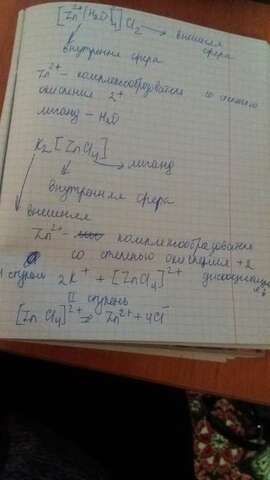 [Zn²⁺(H₂O)₄]Cl₂ → внешняя
внутренняя сфера сфера
Zn²⁺ - комплексообразование со степенью
окисления 2⁺
лиганд - H₂O
K₂[ZnCl₄] → лиганд
внутренняя сфера
внешняя
Zn²⁺ - комплексообразование
со степенью окисления +2
I ступень 2K⁺ + [ZnCl₄]²⁺
II ступень
[ZnCl₄]²⁺ ⇄ Zn²⁺ + 4Cl⁻